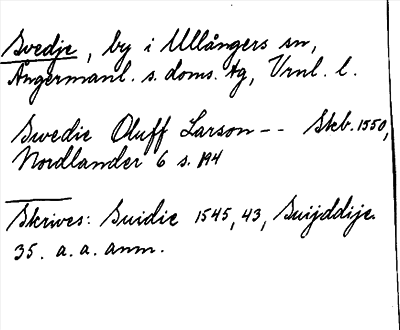 Svedje, by i Ullångers sn,
Ångermanl. s. doms. tg, Vrnl. l.
Swedie Oluff Larson -- Skb. 1550,
Nordlander 6 s. 194
Skrives: Suidie 1545, 43, Suijddije
35. a. a. anm.